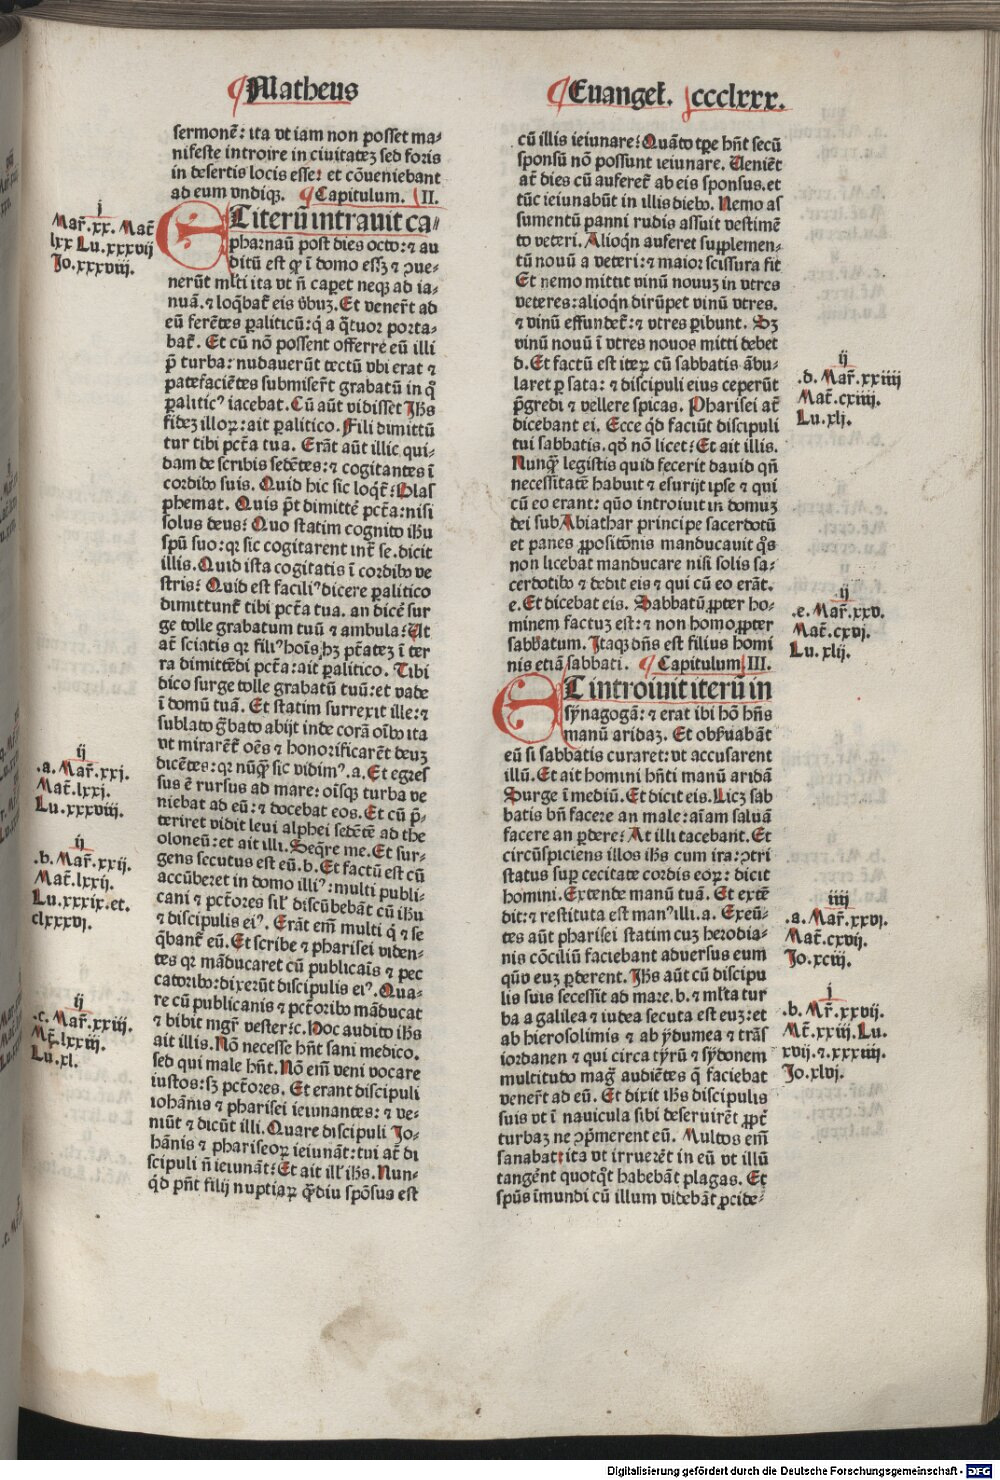 Matheus
Euangeł. ccclxxx.
sermonē: ita vt iam non posset ma-
nifeste introire in ciuitatez sed foris
in desertis locis esse: et cōueniebant
ad eum vndiqꝫ. Capitulum. II.
ET iterū intrauit ca-
pharnaū post dies octo: ⁊ au
ditū est qꝛ ī domo essꝫ ⁊ ꝯue-
nerūt mlti ita vt nō caperet neqꝫ ad ia-
nuā. ⁊ loq̄baĩ eis v̄buꝫ. Et venerūt ad
eū ferētes paliticū: q̇ a q̄tuor porta-
bat̄. Et cū nō possent offerre eū illi
p̄ turba: nudauerūt tectū vbi erat ⁊
patefaciētes submiserūt grabatū in q̇
paliticꝰ iacebat. Cū aūt vidisset Jhs̄
fidez illoꝝ: ait palitico. Fili dimittū
tur tibi pctā tua. Erāt aūt illic qui-
dam de scribis sedētes: ⁊ cogitantes ī
cordibꝰ suis. Quid hic sic loqt̄: Blas
phemat. Quis pt̄ dimittē pctā: nisi
solus deus: Quo statim cognito ihū
spū suo: qꝛ sic cogitarent int̄ se. dicit
illis. Quid ista cogitatis ī cordibꝰ ve
stris: Quid est faciliꝰ dicere palitico
dimittunt̄ tibi pctā tua. an dicē sur
ge tolle grabatum tuū ⁊ ambula: Ut
at̄ sciatis qꝛ filiꝰ hoīs hꝫ ptātez ī ter
ra dimittēdi pctā: ait palitico. Tibi
dico surge tolle grabatū tuū: et vade
ī domū tuā. Et statim surrexit ille: ⁊
sublato g̃bato abijt inde corā oībꝰ ita
vt mirarēt̄ oēs ⁊ honorificarēt deuꝫ
dicētes: qꝛ nūq̄ sic vidimꝰ. a. Et egres
sus ē rursus ad mare: oīsqꝫ turba ve
niebat ad eū: ⁊ docebat eos. Et cū p̄-
teriret vidit leui alphei sedētē ad the
oloneū: et ait illi. Seq̄re me. Et sur-
gens secutus est eū. b. Et factū est cū
accūberet in domo illiꝰ: multi publi-
cani ⁊ pctōres sil̄ discūbebāt cū ihū
⁊ discipulis eiꝰ. Erāt em̄ multi q̇ ⁊ se
q̄bant̄ eū. Et scribe ⁊ pharisei viden-
tes qꝛ māducaret cū publicanis ⁊ pec
catoribꝰ: dixerūt discipulis eiꝰ. Qua-
re cū publicanis ⁊ pctōribꝰ māducat
⁊ bibit mgr̄ vester: c. Hoc audito ihs̄
ait illis. Nō necesse hn̄t sani medico.
sed qui male hn̄t. Nō em̄ veni vocare
iustos: sꝫ pctōres. Et erant discipuli
iohānis ⁊ pharisei ieiunantes: ⁊ ve-
niūt ⁊ dicūt illi. Quare discipuli Jo-
hānis ⁊ phariseoꝝ ieiunāt: tui at̄ di
scipuli n̄ ieiunāt: Et ait ill̄ ihs̄. Nun-
qd pn̄t filij nuptiaꝝ q̄diu spōsus est
cū illis ieiunare: Quāto tp̄e hn̄t secū
sponsū nō possunt ieiunare. Ueniēt
at̄ dies cū auferet̄ ab eis sponsus. et
tūc ieiunabūt in illis diebꝰ. Nemo as
sumentū panni rudis assuit vestimē
to veteri. Alioqn̄ auferet supplemen-
tū nouū a veteri: ⁊ maior scissura fit
Et nemo mittit vinū nouuꝫ in vtres
veteres: alioqn̄ dirūpet vinū vtres.
⁊ vinū effundet̄: ⁊ vtres peribunt. Sꝫ
vinū nouū ī vtres nouos mitti debet
d. Et factū est iteꝝ cū sabbatis ābu-
laret p sata: ⁊ discipuli eius ceperūt
p̄gredi ⁊ vellere spicas. Pharisei at̄
dicebant ei. Ecce qd faciūt discipuli
tui sabbatis. qd̄ nō licet: Et ait illis.
Nunq̄ legistis quid fecerit dauid qn̄
necessitatē habuit ⁊ esurijt ipse ⁊ qui
cū eo erant: quō introiuit in domuꝫ
dei sub Abiathar principe sacerdotū
et panes ꝓpositōnis manducauit q̄s
non licebat manducare nisi solis sa-
cerdotibꝰ ⁊ dedit eis ⁊ qui cū eo erāt.
e. Et dicebat eis. Sabbatū ꝓpter ho-
minem factuꝫ est: ⁊ non homo ꝓpter
sabbatum. Jtaqꝫ dn̄s est filius homi
nis etiā sabbati. Capitulum III.
ET introiuit iterū in
synagogā: ⁊ erat ibi hō hn̄s
manū aridaꝫ. Et obseruabāt
eū si sabbatis curaret: vt accusarent
illū. Et ait homini hn̄ti manū aridā
Surge ī mediū. Et dicit eis. Licꝫ sab
batis bn̄ facere an male: aīam saluā
facere an perdere: At illi tacebant. Et
circūspiciens illos ihs̄ cum ira: ꝯtri
status super cecitate cordis eoꝝ: dicit
homini. Extende manū tuā. Et extē
dit: ⁊ restituta est manꝰ illi. a. Exeū-
tes aūt pharisei statim cuꝫ herodia-
nis cōciliū faciebant aduersus eum
quō euꝫ perderent. Jhs̄ aūt cū discipu
lis suis secessit ad mare. b. ⁊ ml̄ta tur
ba a galilea ⁊ iudea secuta est euꝫ: et
ab hierosolimis ⁊ ab ydumea ⁊ trās
iordanen ⁊ qui circa tyrū ⁊ sydonem
multitudo mag̃ audiētes q̄ faciebat
venerūt ad eū. Et dixit ihs̄ discipulis
suis vt ī nauicula sibi deseruirēt ꝓpt̄
turbaꝫ ne ꝯp̄merent eū. Multos em̄
sanabat: ita vt irruerēt in eū vt illū
tangērt quotqt̄ habebāt plagas. Et
spūs īmundi cū illum videbāt ꝓcide-
j
Mar̄. xx. Mat̄
lxx Lu. xxxvij
Jo. xxxviij.
ij
.a. Mar̄. xxj.
Mat̄. lxxj.
Lu. xxxviij.
ij
.b. Mar̄. xxij.
Mat̄. lxxij.
Lu. xxxix. et.
clxxxvj.
ij
.c. Mar̄. xxiij.
Mt̄. lxxiij.
Lu. xl.
ij
.d. Mar̄. xxiiij
Mat̄. cxiiij.
Lu. xlj.
ij
.e. Mar̄. xxv.
Mat̄. cxvj.
Lu. xlij.
iiij
.a. Mar̄. xxvj.
Mat̄. cxvij.
Jo. xciij.
j
.b. Mr̄. xxvij.
Mt̄. xxiij. Lu.
xvij. ⁊. xxxiiij.
Jo. xlvj.
Digitalisierung gefördert durch die Deutsche Forschungsgemeinschaft - DFG